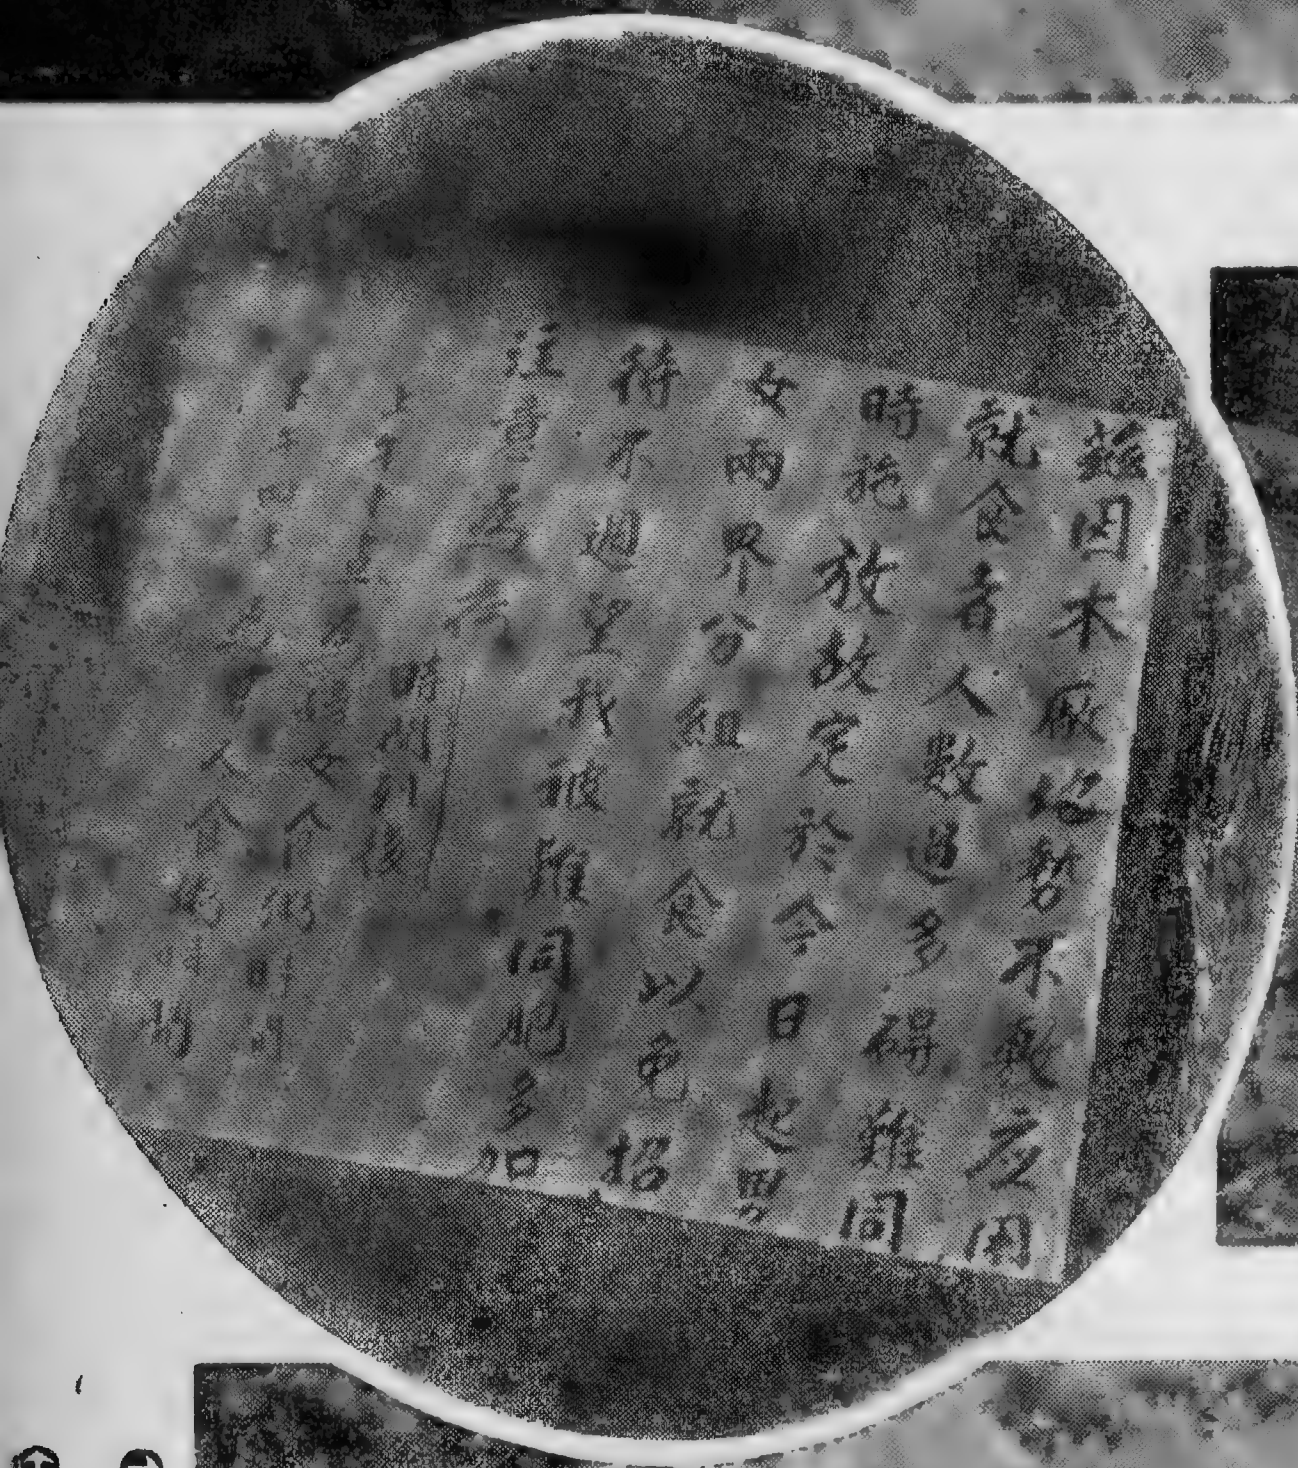 茲因木廠地勢不敷应用
就食者人數過多碍難同
時施放故定於今日起男
女兩界分組就食以免招
待不週望我被難同胞多加
注意為荷
時間列後
女食粥時間
人食粥時間